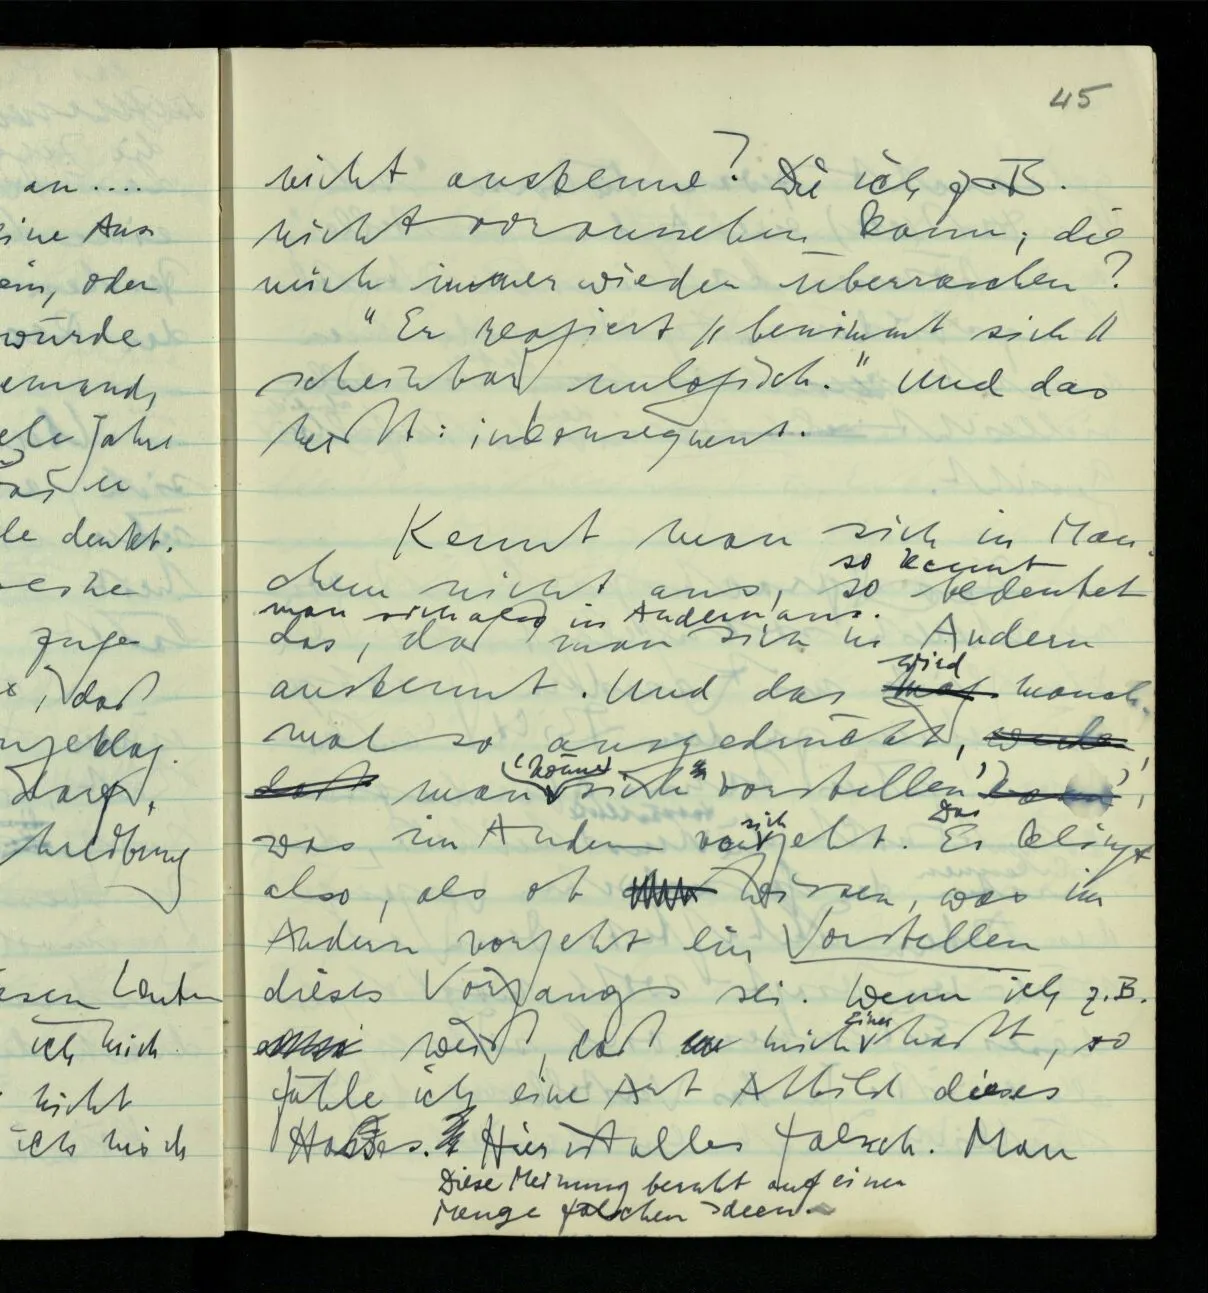 45
an ....
eine Aus
ein, oder
würde
jemand,
viele Jahre
denkt.
zuge
, daß
ich mich
nicht
ich mich
nicht auskenne? Die ich z.B.
nicht voraussehen kann; die
mich immer wieder überraschen?
"Er reagiert // benimmt sich //
scheinbar unlogisch." Und das
heißt: inkonsequent.
Kennt man sich in Man-
so kennt
chem nicht aus, so bedeutet
man sich also in Anderm aus.
das, daß man sich in Anderm
auskennt. Und das
wird
manch-
mal so ausgedrückt,
(könne)
man sich vorstellen,
was im Andern vorgeht. Es klingt
sich
Das
also, als ob Wissen, was im
Andern vorgeht ein Vorstellen
dieses Vorgangs sei. Wenn ich z.B.
weiß, daß mich einer haßt, so
fühle ich eine Art Abbild dieses
Hasses. Hier ist alles falsch. Man
Diese Meinung beruht auf einer
Menge falschen Ideen.